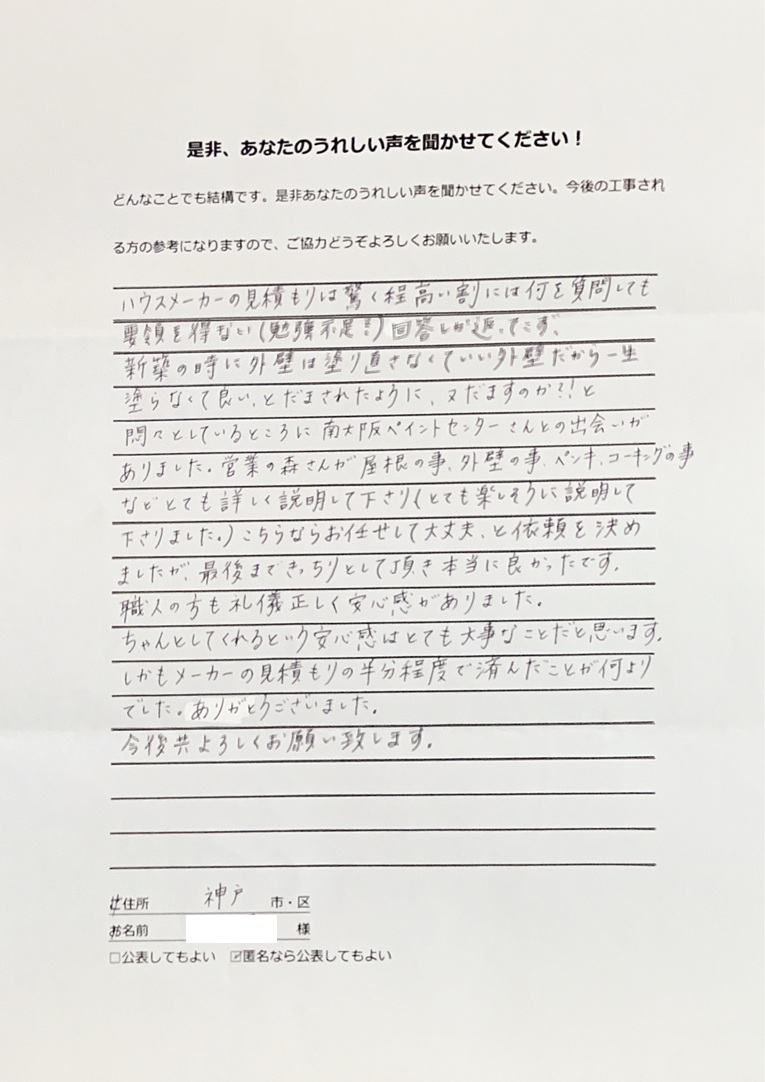 是非、あなたのうれしい声を聞かせてください！
どんなことでも結構です。是非あなたのうれしい声を聞かせてください。今後の工事され
る方の参考になりますので、ご協力どうぞよろしくお願いいたします。
ハウスメーカーの見積もりは驚く程高い割には何を質問しても
要領を得ない(勉強不足!!)回答しか返ってこず、
新築の時に外壁は塗り直さなくていい外壁だから一生
塗らなくて良い、とだまされたように、又だますのか?!と
悶々としているところに南大阪ペイントセンターさんとの出会いが
ありました。営業の森さんが屋根の事、外壁の事、ペンキ、コーキングの事
などとても詳しく説明して下さり(とても楽しそうに説明して
下さりました。)こちらならお任せして大丈夫、と依頼を決め
ましたが、最後まできっちりとして頂き本当に良かったです。
職人の方も礼儀正しく安心感がありました。
ちゃんとしてくれるという安心感はとても大事なことだと思います。
しかもメーカーの見積もりの半分程度で済んだことが何より
でした。ありがとうございました。
今後共よろしくお願い致します。
住所 神戸 市・区
お名前 様
□公表してもよい ☑匿名なら公表してもよい